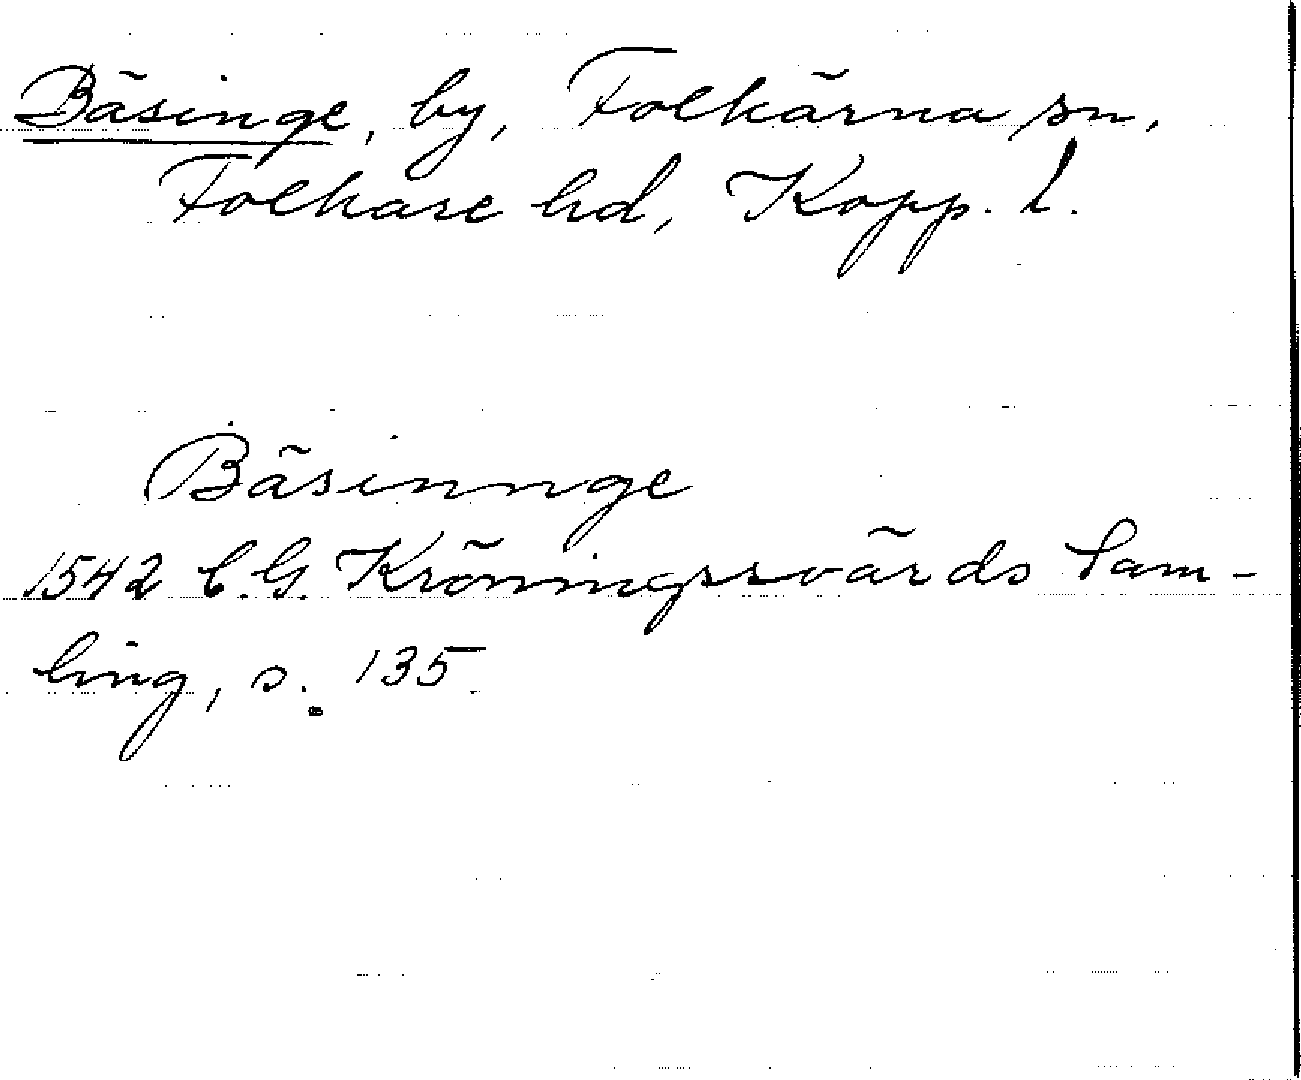 Bäsinge, by, Folkärna sn,
Folkare hd, Kopp. l.
Bäsinnge
1542 C.G. Kröningssvärds Sam-
ling, s. 135